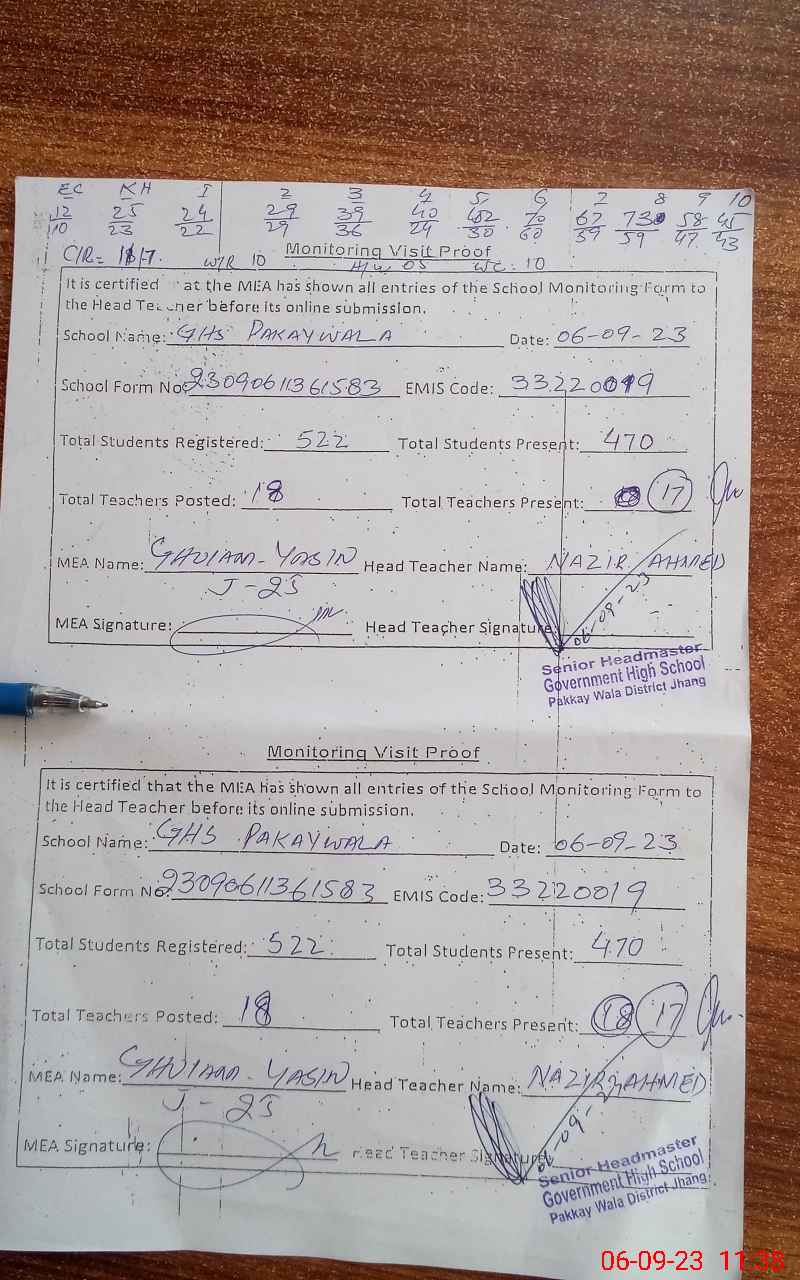 EC KH I 2 3 4 5 6 7 8 9 10
12 25 24 29 39 40 482 70 67 73 58 45
10 23 22 29 36 24 30 60 59 59 47 43
C/R= 17. W/R 10 Monitoring Visit Proof
H/W 05 WC: 10
It is certified at the MEA has shown all entries of the School Monitoring Form to
the Head Teacher before its online submission.
School Name: GHS PAKAYWALA Date: 06-09-23
School Form No: 2309061361583 EMIS Code: 33220019
Total Students Registered: 522 Total Students Present: 470
Total Teachers Posted: 18 Total Teachers Present: 17
MEA Name: GHULAM-YASIN Head Teacher Name: NAZIR AHMED
J-25
MEA Signature: Head Teacher Signature:
06-09-23
Senior Headmaster
Government High School
Pakkay Wala District Jhang
Monitoring Visit Proof
It is certified that the MEA has shown all entries of the School Monitoring Form to
the Head Teacher before its online submission.
School Name: GHS PAKAYWALA Date: 06-09-23
School Form No: 23090611361583 EMIS Code: 33220019
Total Students Registered: 522 Total Students Present: 470
Total Teachers Posted: 18 Total Teachers Present: 18 17
MEA Name: GHULAM-YASIN Head Teacher Name: NAZIR AHMED
J-25
MEA Signature: Head Teacher Signature:
Senior Headmaster
Government High School
Pakkay Wala District Jhang
06-09-23 11:38